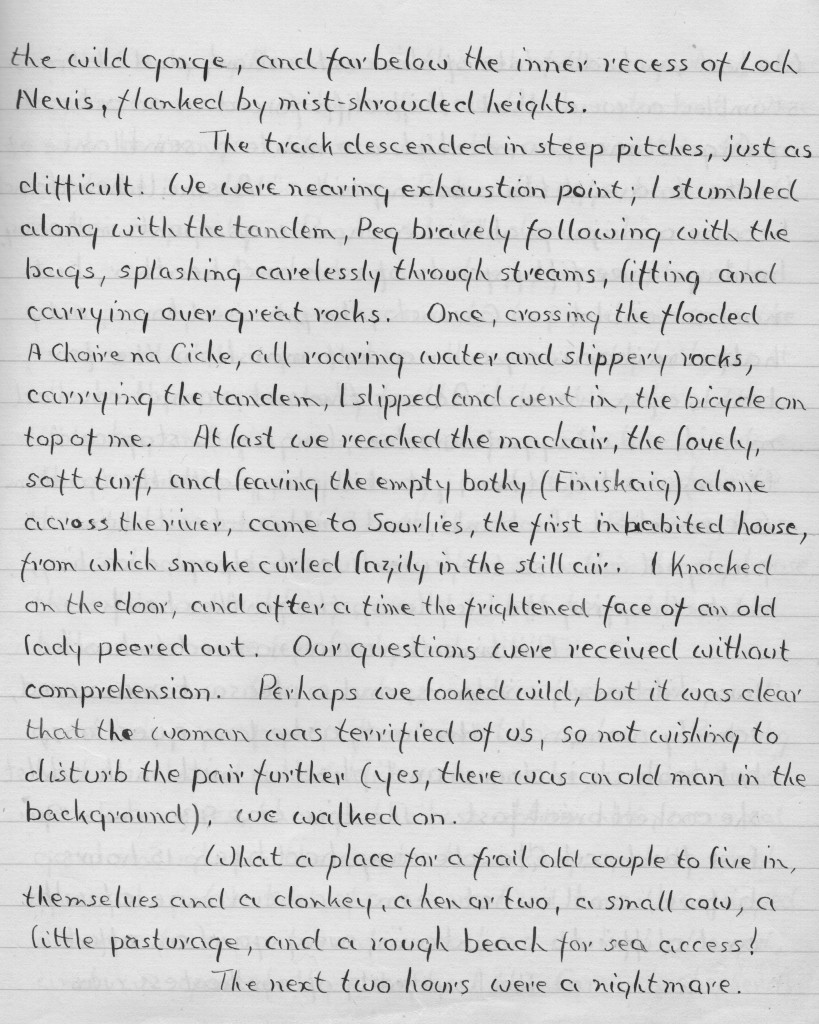 the wild gorge, and far below the inner recess of Loch
Nevis, flanked by mist-shrouded heights.
The track descended in steep pitches, just as
difficult. We were nearing exhaustion point; I stumbled
along with the tandem, Peg bravely following with the
bags, splashing carelessly through streams, lifting and
carrying over great rocks. Once, crossing the flooded
A Choire na Ciche, all roaring water and slippery rocks,
carrying the tandem, I slipped and went in, the bicycle on
top of me. At last we reached the machair, the lovely,
soft turf, and leaving the empty bothy (Finiskaig) alone
across the river, came to Sourlies, the first inhabited house,
from which smoke curled lazily in the still air. I Knocked
on the door, and after a time the frightened face of an old
lady peered out. Our questions were received without
comprehension. Perhaps we looked wild, but it was clear
that the woman was terrified of us, so not wishing to
disturb the pair further (yes, there was an old man in the
background), we walked on.
What a place for a frail old couple to live in,
themselves and a donkey, a hen or two, a small cow, a
little pasturage, and a rough beach for sea access!
The next two hours were a nightmare.